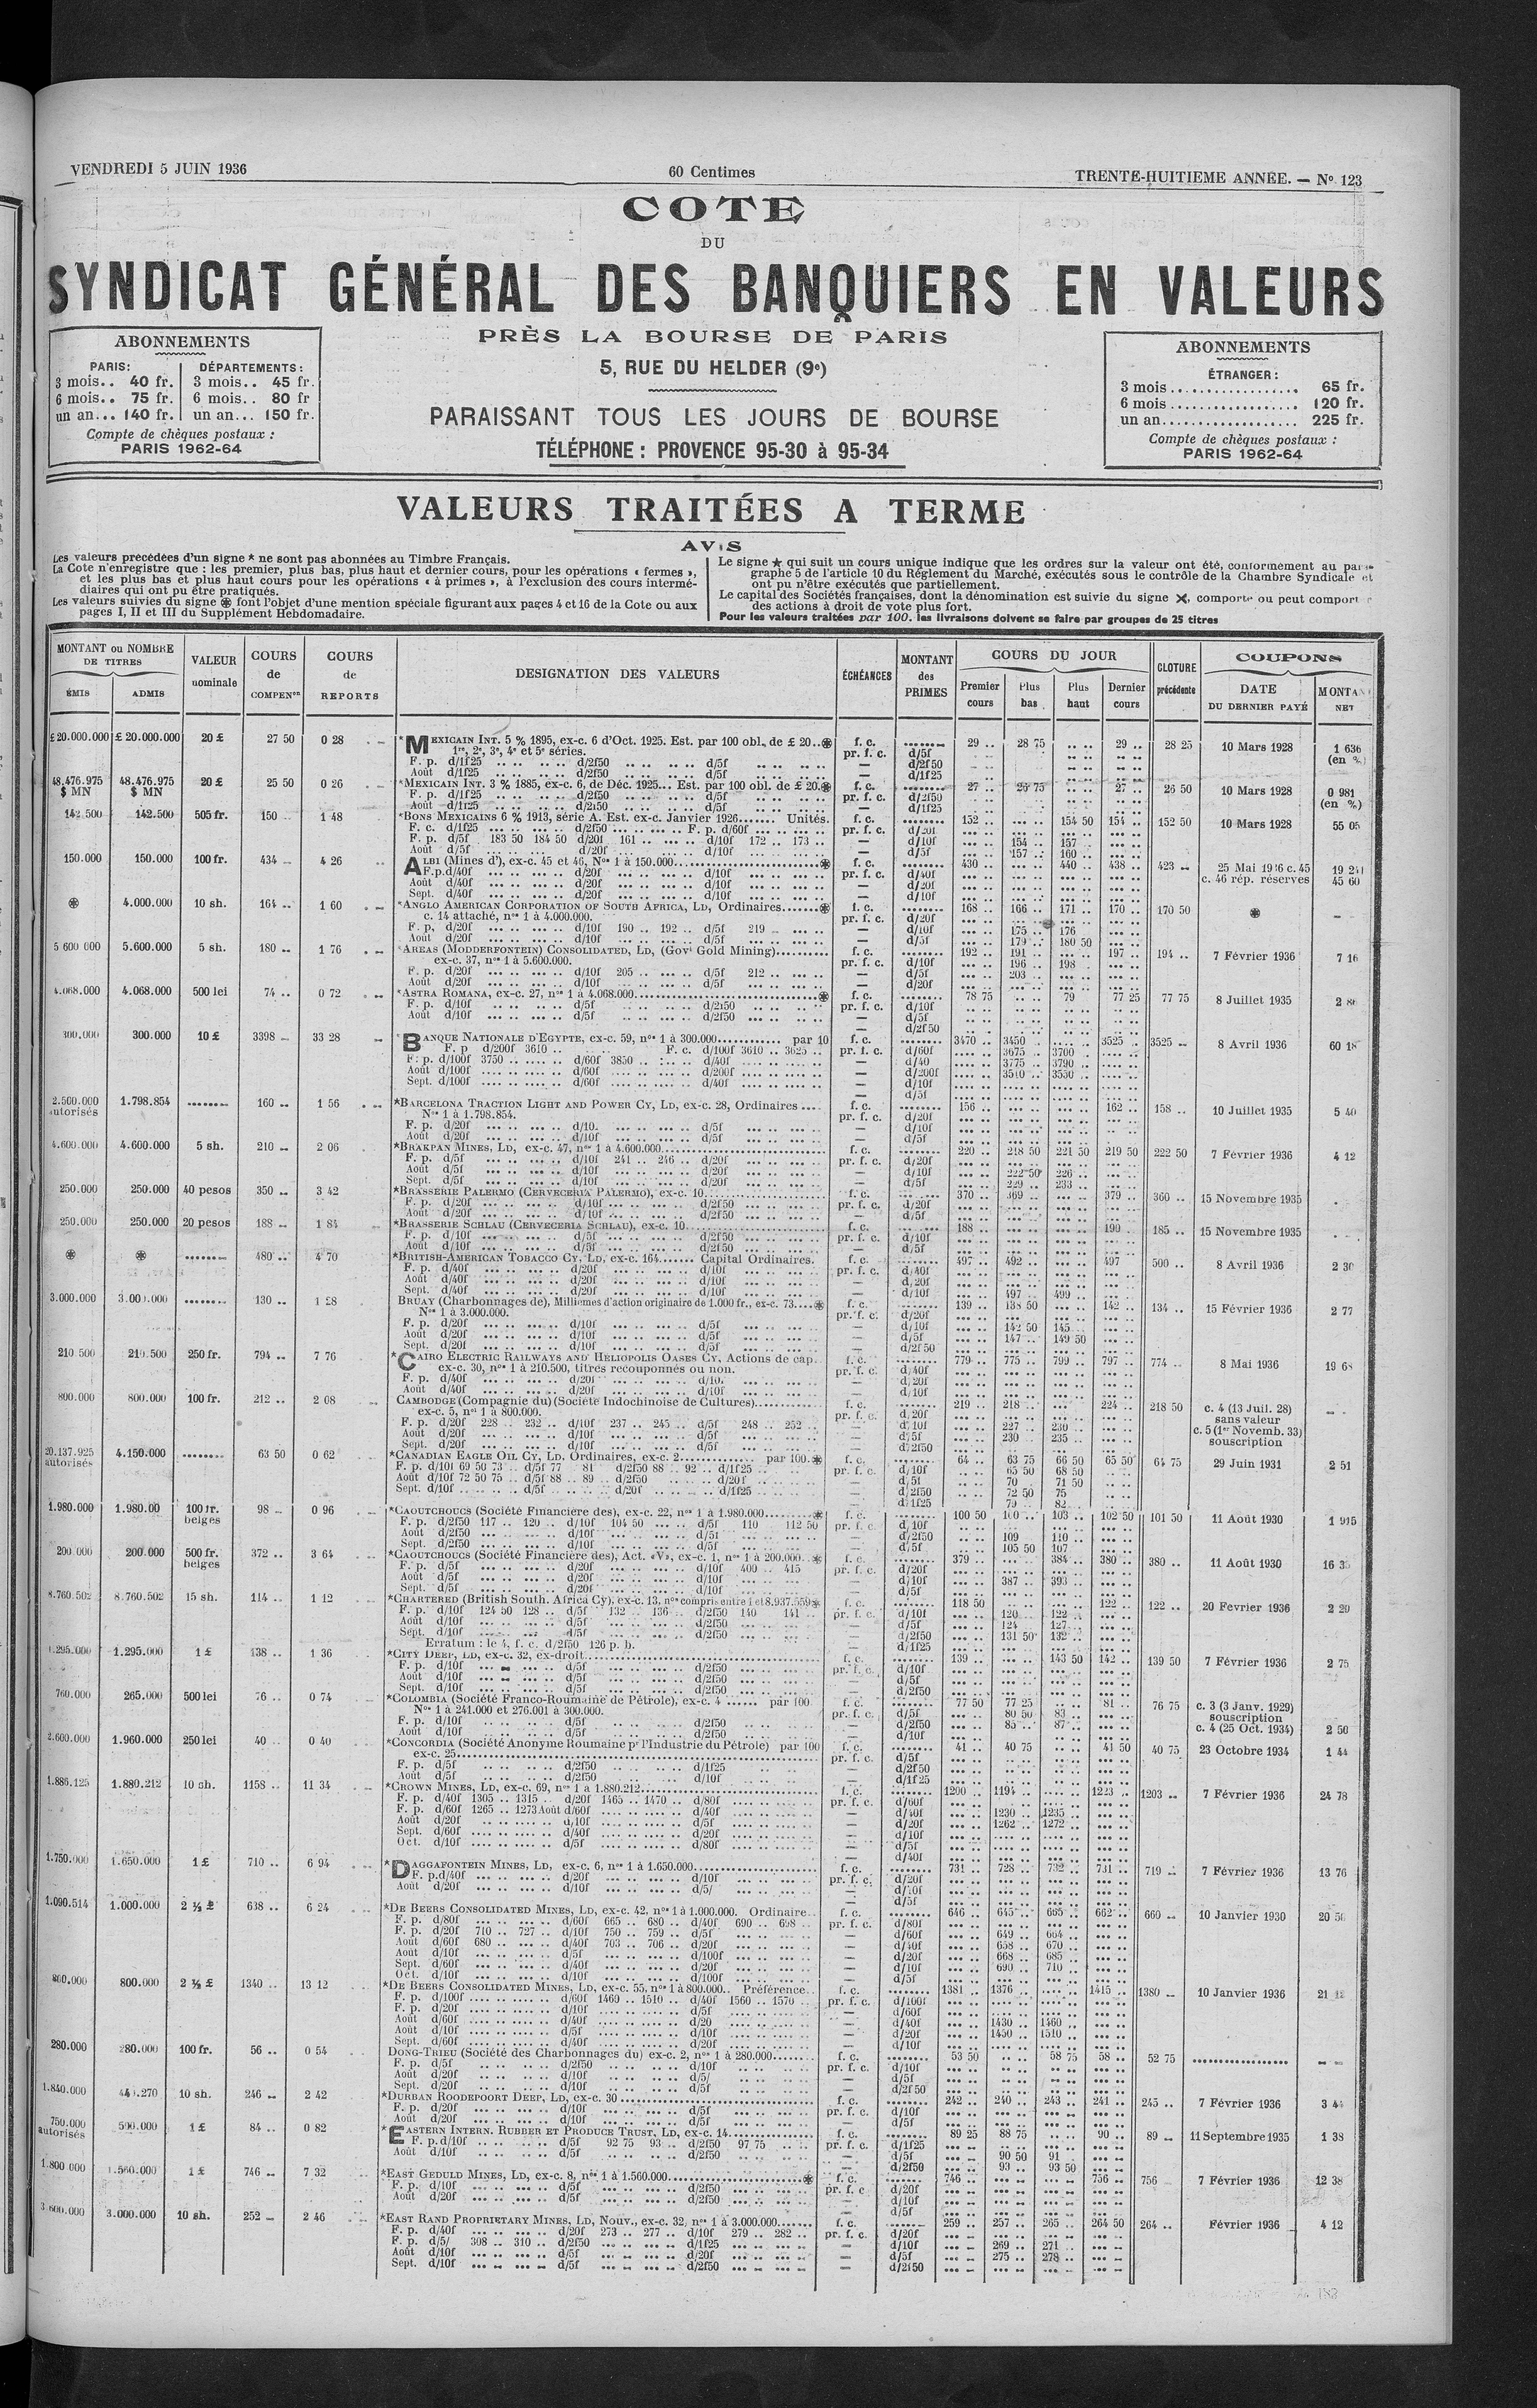 VENDREDI 5 JUIN 1936
60 Centimes
TRENTE-HUITIEME ANNÉE. — No 123
COTE
DU
SYNDICAT GÉNÉRAL DES BANQUIERS EN VALEURS
PRÈS LA BOURSE DE PARIS
5, RUE DU HELDER (9e)
PARAISSANT TOUS LES JOURS DE BOURSE
TÉLÉPHONE : PROVENCE 95-30 à 95-34
ABONNEMENTS
PARIS: DÉPARTEMENTS:
3 mois.. 40 fr. 3 mois.. 45 fr.
6 mois.. 75 fr. 6 mois.. 80 fr
un an... 140 fr. un an... 150 fr.
Compte de chèques postaux :
PARIS 1962-64
ABONNEMENTS
ÉTRANGER :
3 mois .................. 65 fr.
6 mois .................. 120 fr.
un an.................. 225 fr.
Compte de chèques postaux :
PARIS 1962-64
VALEURS TRAITÉES A TERME
AVIS
Les valeurs précédées d'un signe * ne sont pas abonnées au Timbre Français.
La Cote n'enregistre que : les premier, plus bas, plus haut et dernier cours, pour les opérations « fermes »,
et les plus bas et plus haut cours pour les opérations « à primes », à l'exclusion des cours intermé-
diaires qui ont pu être pratiqués.
Les valeurs suivies du signe ⊛ font l'objet d'une mention spéciale figurant aux pages 4 et 16 de la Cote ou aux
pages I, II et III du Supplément Hebdomadaire.
Le signe ★ qui suit un cours unique indique que les ordres sur la valeur ont été, conformément au
graphe 5 de l'article 10 du Règlement du Marché, exécutés sous le contrôle de la Chambre Syndicale et
ont pu n'être exécutés que partiellement.
Le capital des Sociétés françaises, dont la dénomination est suivie du signe ✕, comporte ou peut
des actions à droit de vote plus fort.
Pour les valeurs traitées par 100. les livraisons doivent se faire par groupes de 25 titres
MONTANT ou NOMBRE DE TITRES
ÉMIS ADMIS
VALEUR nominale
COURS de COMPENon
COURS de REPORTS
DESIGNATION DES VALEURS
ÉCHÉANCES
MONTANT des PRIMES
COURS DU JOUR
Premier cours Plus bas Plus haut Dernier cours
CLOTURE précédente
COUPONS
DATE DU DERNIER PAYÉ
NET
£ 20.000.000 £ 20.000.000 20 £ 27 50 0 28 *MEXICAIN INT. 5 % 1895, ex-c. 6 d'Oct. 1925. Est. par 100 obl. de £ 20..⊛ f. c. 29 .. 28 75 .. .. 29 .. 28 25 10 Mars 1928 1 636
1re, 2e, 3e, 4e et 5e séries. pr. f. c. d/5f (en %)
F. p. d/1f25 d/2f50 d/5f — d/2f50
Août d/1f25 d/2f50 d/5f — d/1f25
48.476.975 $ MN 48.476.975 $ MN 20 £ 25 50 0 26 *MEXICAIN INT. 3 % 1885, ex-c. 6, de Déc. 1925... Est. par 100 obl. de £ 20.⊛ f. c. 27 .. 27 .. 26 50 10 Mars 1928 0 981
F. p. d/1f25 d/2f50 d/5f pr. f. c. d/2f50 (en %)
142.500 142.500 505 fr. 150 1 48 *BONS MEXICAINS 6 % 1913, série A. Est. ex-c. Janvier 1926....... Unités. f. c. 152 .. 154 50 154 .. 152 50 10 Mars 1928 55 05
F. c. d/1f25 d/2f50 F. p. d/60f pr. f. c. d/20f
F. p. d/5f 183 50 184 50 d/20f 161 .. d/10f 172 .. 173 .. — d/10f 154 .. 157
Août d/5f d/20f d/10f — d/5f 157 .. 160 ..
150.000 150.000 100 fr. 434 4 26 ALBI (Mines d'), ex-c. 45 et 46, Nos 1 à 150.000 ⊛ f. c. 430 .. 440 .. 438 .. 423 25 Mai 1936 c. 45
F.p.d/40f d/20f d/10f pr. f. c. d/40f c. 46 rép. réserves 45 60
Août d/40f d/20f d/10f — d/20f
Sept. d/40f d/20f d/10f — d/10f
⊛ 4.000.000 10 sh. 164 .. 1 60 *ANGLO AMERICAN CORPORATION OF SOUTH AFRICA, LD, Ordinaires.......⊛ f. c. 168 .. 166 .. 171 .. 170 .. 170 50 ⊛
c. 14 attaché, nos 1 à 4.000.000. pr. f. c. d/20f
F. p, d/20f d/10f 190 .. 192 .. d/5f 219 — d/10f 175 .. 176
Août d/20f d/10f d/5f — d/5f 179 .. 180 50
5 600 000 5.600.000 5 sh. 180 1 76 *AREAS (MODDERFONTEIN) CONSOLIDATED, LD, (Govt Gold Mining).......... f. c. 192 .. 191 .. 197 .. 194 .. 7 Février 1936 7 16
ex-c. 37, nos 1 à 5.600.000. pr. f. c. d/10f 196 .. 198
F. p. d/20f d/10f 205 .. d/5f 212 .. — d/5f 203 ..
Août d/20f d/10f d/5f — d/20f
4.068.000 4.068.000 500 lei 74 .. 0 72 *ASTRA ROMANA, ex-c. 27, nos 1 à 4.068.000 ⊛ f. c. 78 75 79 77 25 77 75 8 Juillet 1935
F. p. d/10f d/5f d/2f50 pr. f. c. d/10f
Août d/10f d/5f d/2f50 — d/5f
— d/2f50
300.000 300.000 10 £ 3398 33 28 *BANQUE NATIONALE D'EGYPTE, ex-c. 59, nos 1 à 300.000............ par 10 f. c. 3470 .. 3450 .. 3525 .. 3525 8 Avril 1936 60 18
F. p d/200f 3610 .. F. c. d/100f 3610 .. 3625 .. pr. f. c. d/60f 3675 .. 3700
F. p. d/100f 3750 .. d/60f 3850 .. d/40f — d/40 3775 .. 3790 ..
Août d/100f d/60f d/200f — d/200f 3510 .. 3550 ..
Sept. d/100f d/60f d/40f — d/10f
— d/5f
2.500.000 autorisés 1.798.854 160 1 56 *BARCELONA TRACTION LIGHT AND POWER CY, LD, ex-c. 28, Ordinaires .... f. c. 156 .. 162 .. 158 .. 10 Juillet 1935 5 40
Nos 1 à 1.798.854. pr. f. c. d/20f
F. p. d/20f d/10. d/5f — d/10f
Août d/20f d/10f d/5f — d/5f
4.600.000 4.600.000 5 sh. 210 2 06 *BRAKPAN MINES, LD, ex-c. 47, nos 1 à 4.600.000 f. c. 220 .. 218 50 221 50 219 50 222 50 7 Février 1936 4 12
F. p. d/5f d/10f 241 .. 246 .. d/20f pr. f. c. d/20f
Août d/5f d/10f d/20f — d/10f 222 50 226 ..
Sept. d/5f d/10f d/20f — d/5f 229 .. 233 ..
250.000 250.000 40 pesos 350 3 42 *BRASSERIE PALERMO (CERVECERIA PALERMO), ex-c. 10 f. c. 370 .. 369 .. 379 .. 360 .. 15 Novembre 1935
F. p. d/20f d/10f d/2f50 pr. f. c. d/20f
Août d/20f d/10f d/2f50 — d/5f
250.000 250.000 20 pesos 188 1 84 *BRASSERIE SCHLAU (CERVECERIA SCHLAU), ex-c. 10 f. c. 188 .. 190 .. 185 .. 15 Novembre 1935
F. p. d/10f d/5f d/2f50 pr. f. c. d/10f
Août d/10f d/5f d/2f50 — d/5f
⊛ ⊛ 480 .. 4 70 *BRITISH-AMERICAN TOBACCO CY, LD, ex-c. 164....... Capital Ordinaires. f. c. 497 .. 492 .. 497 500 .. 8 Avril 1936
F. p. d/40f d/20f d/10f pr. f. c. d/40f
Août d/40f d/20f d/10f — d/20f
Sept. d/40f d/20f d/10f — d/10f 497 .. 499 ..
3.000.000 3.000.000 130 .. 1 28 BRUAY (Charbonnages de), Millièmes d'action originaire de 1.000 fr., ex-c. 73....⊛ f. c. 139 .. 138 50 142 .. 134 .. 15 Février 1936 2 77
Nos 1 à 3.000.000. pr. f. c. d/20f
F. p. d/20f d/10f d/5f — d/10f 142 50 145
Août d/20f d/10f d/5f — d/5f 147 .. 149 50
Sept. d/20f d/10f d/5f — d/2f50
210 500 210.500 250 fr. 794 7 76 *CAIRO ELECTRIC RAILWAYS AND HELIOPOLIS OASES CY, Actions de cap. f. c. 779 .. 775 .. 799 .. 797 .. 774 8 Mai 1936 19 68
ex-c. 30, nos 1 à 210.500, titres recouponnés ou non. pr. f. c. d/40f
F. p. d/40f d/20f d/10. — d/20f
Août d/40f d/20f d/10f — d/10f
800.000 800.000 100 fr. 212 .. 2 08 CAMBODGE (Compagnie du) (Société Indochinoise de Cultures) f. c. 219 .. 218 .. 224 .. 218 50 c. 4 (13 Juil. 28)
ex-c. 5, nos 1 à 800.000. pr. f. c. d/20f sans valeur
F. p. d/20f 228 .. 232 .. d/10f 237 .. 245 .. d/5f 248 .. 252 — d/10f 227 .. 230 .. c. 5 (1er Novemb. 33)
Août d/20f d/10f d/5f — d/5f 230 .. 235 .. souscription
Sept. d/20f d/10f d/5f — d/2f50
20.137.925 autorisés 4.150.000 63 50 0 62 *CANADIAN EAGLE OIL CY, LD. Ordinaires, ex-c. 2............. par 100.⊛ f. c. 64 .. 63 75 66 50 65 50 64 75 29 Juin 1931 2 51
F. p. d/10f 69 50 73 .. d/5f 77 81 d/2f50 88 .. 92 .. d/1f25 pr. f. c. d/10f 65 50 68 50
Août d/10f 72 50 75 .. d/5f 88 .. 89 .. d/2f50 d/20f — d/5f 70 71 50
Sept. d/10f d/5f d/20f d/1f25 — d/2f50 72 50 75
— d/1f25 79 .. 82
1.980.000 100 fr. belges 98 0 96 *CAOUTCHOUCS (Société Financière des), ex-c. 22, nos 1 à 1.980.000 ⊛ f. c. 100 50 100 .. 103 .. 102 50 101 50 11 Août 1930 1 915
F. p. d/2f50 117 .. 120 .. d/10f 104 50 d/5f 110 112 50 pr. f. c. d/10f
Août d/2f50 d/10f d/5f — d/2f50 109 110
Sept. d/2f50 d/10f d/5f — d/5f 105 50 107
200.000 200.000 500 fr. belges 372 .. 3 64 *CAOUTCHOUCS (Société Financière des), Act. «V», ex-c. 1, nos 1 à 200.000..⊛ f. c. 379 .. 384 .. 380 .. 380 .. 11 Août 1930
F. p. d/5f d/20f d/10f 400 .. 415 pr. f. c. d/20f
Août d/5f d/20f d/10f — d/10f 387 .. 393
Sept. d/5f d/20f d/10f — d/5f
8.760.502 8.760.502 15 sh. 114 .. 1 12 *CHARTERED (British South. Africa Cy), ex-c. 13, nos compris entre 1 et 8.937.559⊛ f. c. 118 50 122 .. 122 .. 20 Fevrier 1936 2 29
F. p. d/10f 124 50 128 .. d/5f 132 .. 136 .. d/2f50 140 141 .. pr. f. c. d/10f 120 122
Août d/10f d/5f d/2f50 — d/5f 124 127
Sept. d/10f d/5f d/2f50 — d/2f50 131 50 132 ..
Erratum : le 4, f. c. d/2f50 126 p. b. — d/1f25
1.295.000 1.295.000 1 £ 138 .. 1 36 *CITY DEEP, LD, ex-c. 32, ex-droit f. c. 139 .. 143 50 142 .. 139 50 7 Février 1936 2 75
F. p. d/10f d/5f d/2f50 pr. f. c. d/10f
Août d/10f d/5f d/2f50 — d/5f
Sept. d/10f d/5f d/2f50 — d/2f50
760.000 265.000 500 lei 76 .. 0 74 *COLOMBIA (Société Franco-Roumaine de Pétrole), ex-c. 4 ...... par 100 f. c. 77 50 77 25 81 .. 76 75 c. 3 (3 Janv. 1929)
Nos 1 à 241.000 et 276.001 à 300.000. pr. f. c. d/5f 80 50 83 souscription
F. p. d/10f d/5f d/2f50 — d/2f50 85 .. 87 .. c. 4 (25 Oct. 1934) 2 50
Août d/10f d/5f d/2f50 — d/10f
2.600.000 1.960.000 250 lei 40 .. 0 40 *CONCORDIA (Société Anonyme Roumaine pr l'Industrie du Pétrole) par 100 f. c. 41 .. 40 75 41 50 40 75 23 Octobre 1934 1 44
ex-c. 25 pr. f. c. d/5f
F. p. d/5f d/2f50 d/1f25 — d/2f50
Août d/5f d/2f50 d/10f — d/1f25
1.886.125 1.880.212 10 sh. 1158 .. 11 34 *CROWN MINES, LD, ex-c. 69, nos 1 à 1.880.212 f. c. 1200 .. 1194 .. 1223 .. 1203 7 Février 1936 24 78
F. p. d/40f 1305 .. 1315 .. d/20f 1465 .. 1470 .. d/80f pr. f. c. d/60f
F. p. d/60f 1265 .. 1273 Août d/60f d/40f — d/40f 1230 .. 1235 ..
Août d/20f d/10f d/5f — d/20f 1262 .. 1272 ..
Sept. d/60f d/40f d/20f — d/10f
Oct. d/10f d/5f d/80f — d/5f
— d/40f
1.750.000 1.650.000 1 £ 710 .. 6 94 *DAGGAFONTEIN MINES, LD, ex-c. 6, nos 1 à 1.650.000 f. c. 731 .. 728 .. 732 .. 731 .. 719 7 Février 1936 13 76
F. p.d/40f d/20f d/10f pr. f. c. d/20f
Août d/20f d/10f d/5/ — d/10f
— d/5f
1.090.514 1.000.000 2 ½ £ 638 .. 6 24 *DE BEERS CONSOLIDATED MINES, LD, ex-c. 42, nos 1 à 1.000.000. Ordinaire.. f. c. 646 .. 645 .. 665 .. 662 .. 660 10 Janvier 1930
F. p. d/80f d/60f 665 .. 680 .. d/40f 690 .. 698 .. pr. f. c. d/80f
F. p. d/20f 710 .. 727 .. d/10f 750 .. 759 .. d/5f — d/60f 649 .. 664 ..
Août d/60f 680 .. d/40f 703 .. 706 .. d/20f — d/40f 658 .. 670 ..
Août d/10f d/5f d/100f — d/20f 668 .. 685 ..
Sept. d/60f d/40f d/20f — d/10f 690 .. 710 ..
Oct. d/10f d/10f d/100f — d/5f
800.000 800.000 2 ½ £ 1340 .. 13 12 *DE BEERS CONSOLIDATED MINES, LD, ex-c. 55, nos 1 à 800.000.. Préférence.. f. c. 1381 .. 1376 .. 1415 .. 1380 10 Janvier 1936
F. p. d/100f d/60f 1460 .. 1510 .. d/40f 1560 .. 1570 .. pr. f. c. d/100f
F. p. d/20f d/10f d/5f — d/60f
Août d/60f d/40f d/20 — d/40f 1430 .. 1460 ..
Août d/10f d/5f d/10f — d/20f 1450 .. 1510 ..
Sept. d/60f d/40f d/20f — d/10f
280.000 280.000 100 fr. 56 .. 0 54 DONG-TRIEU (Société des Charbonnages du) ex-c. 2, nos 1 à 280.000 f. c. 53 50 58 75 58 .. 52 75
F. p. d/5f d/2f50 d/10f pr. f. c. d/10f
Août d/20f d/10f d/5/ — d/5f
Sept. d/20f d/10f d/5f — d/2f50
1.840.000 10 sh. 246 2 42 *DURBAN ROODEPOORT DEEP, LD, ex-c. 30 f. c. 242 .. 240 .. 243 .. 241 .. 245 .. 7 Février 1936 3 44
F. p. d/20f d/10f d/5f pr. f. c. d/10f
Août d/20f d/10f d/5f — d/5f
750.000 autorisés 500.000 1 £ 84 .. 0 82 *EASTERN INTERN. RUBBER ET PRODUCE TRUST, LD, ex-c. 14 f. c. 89 25 88 75 90 .. 89 11 Septembre 1935 1 38
F. p.d/10f d/5f 92 75 93 .. d/2f50 97 75 pr. f. c. d/1f25
Août d/10f d/5f d/2f50 — d/5f 90 50 91
— d/2f50 93 .. 93 50
1.800 000 1.560.000 1 £ 746 7 32 *EAST GEDULD MINES, LD, ex-c. 8, nos 1 à 1.560.000 ⊛ f. c. 746 .. 756 .. 756 7 Février 1936 12 38
F. p. d/10f d/5f d/2f50 pr. f. c d/20f
Août d/20f d/5f d/2f50 — d/10f
— d/5f
3.000.000 10 sh. 252 2 46 *EAST RAND PROPRIETARY MINES, LD, Nouv., ex-c. 32, nos 1 à 3.000.000 f. c. 259 .. 257 .. 265 .. 264 50 264 .. Février 1936 4 12
F. p. d/40f d/20f 273 .. 277 .. d/10f 279 .. 282 .. pr. f. c. d/20f
F. p. d/5/ 308 .. 310 .. d/2f50 d/1f25 — d/10f 269 .. 271 ..
Août d/10f d/5f d/20f — d/5f 275 .. 278 ..
Sept. d/10f d/5f d/2f50 — d/2f50